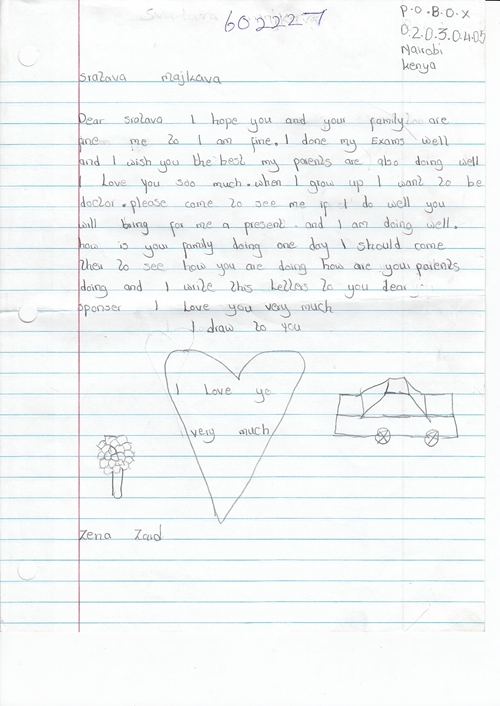 602227
P.O.BOX
0.2.0.3.0.4.05
Nairobi
Kenya
sralava majkava
Dear sralava I hope you and your family are
fine me to I am fine. I done my Exams well
and I wish you the best my parents are also doing well
I Love you soo much. when I grow up I want to be
doctor. please come to see me if I do well you
will bring for me a present. and I am doing well.
how is your family doing one day I should come
ther to see how you are doing how are your parents
doing and I write this Letters to you dear
sponser I Love you very much
I draw to you
I Love yo
very much
Zena Zaid